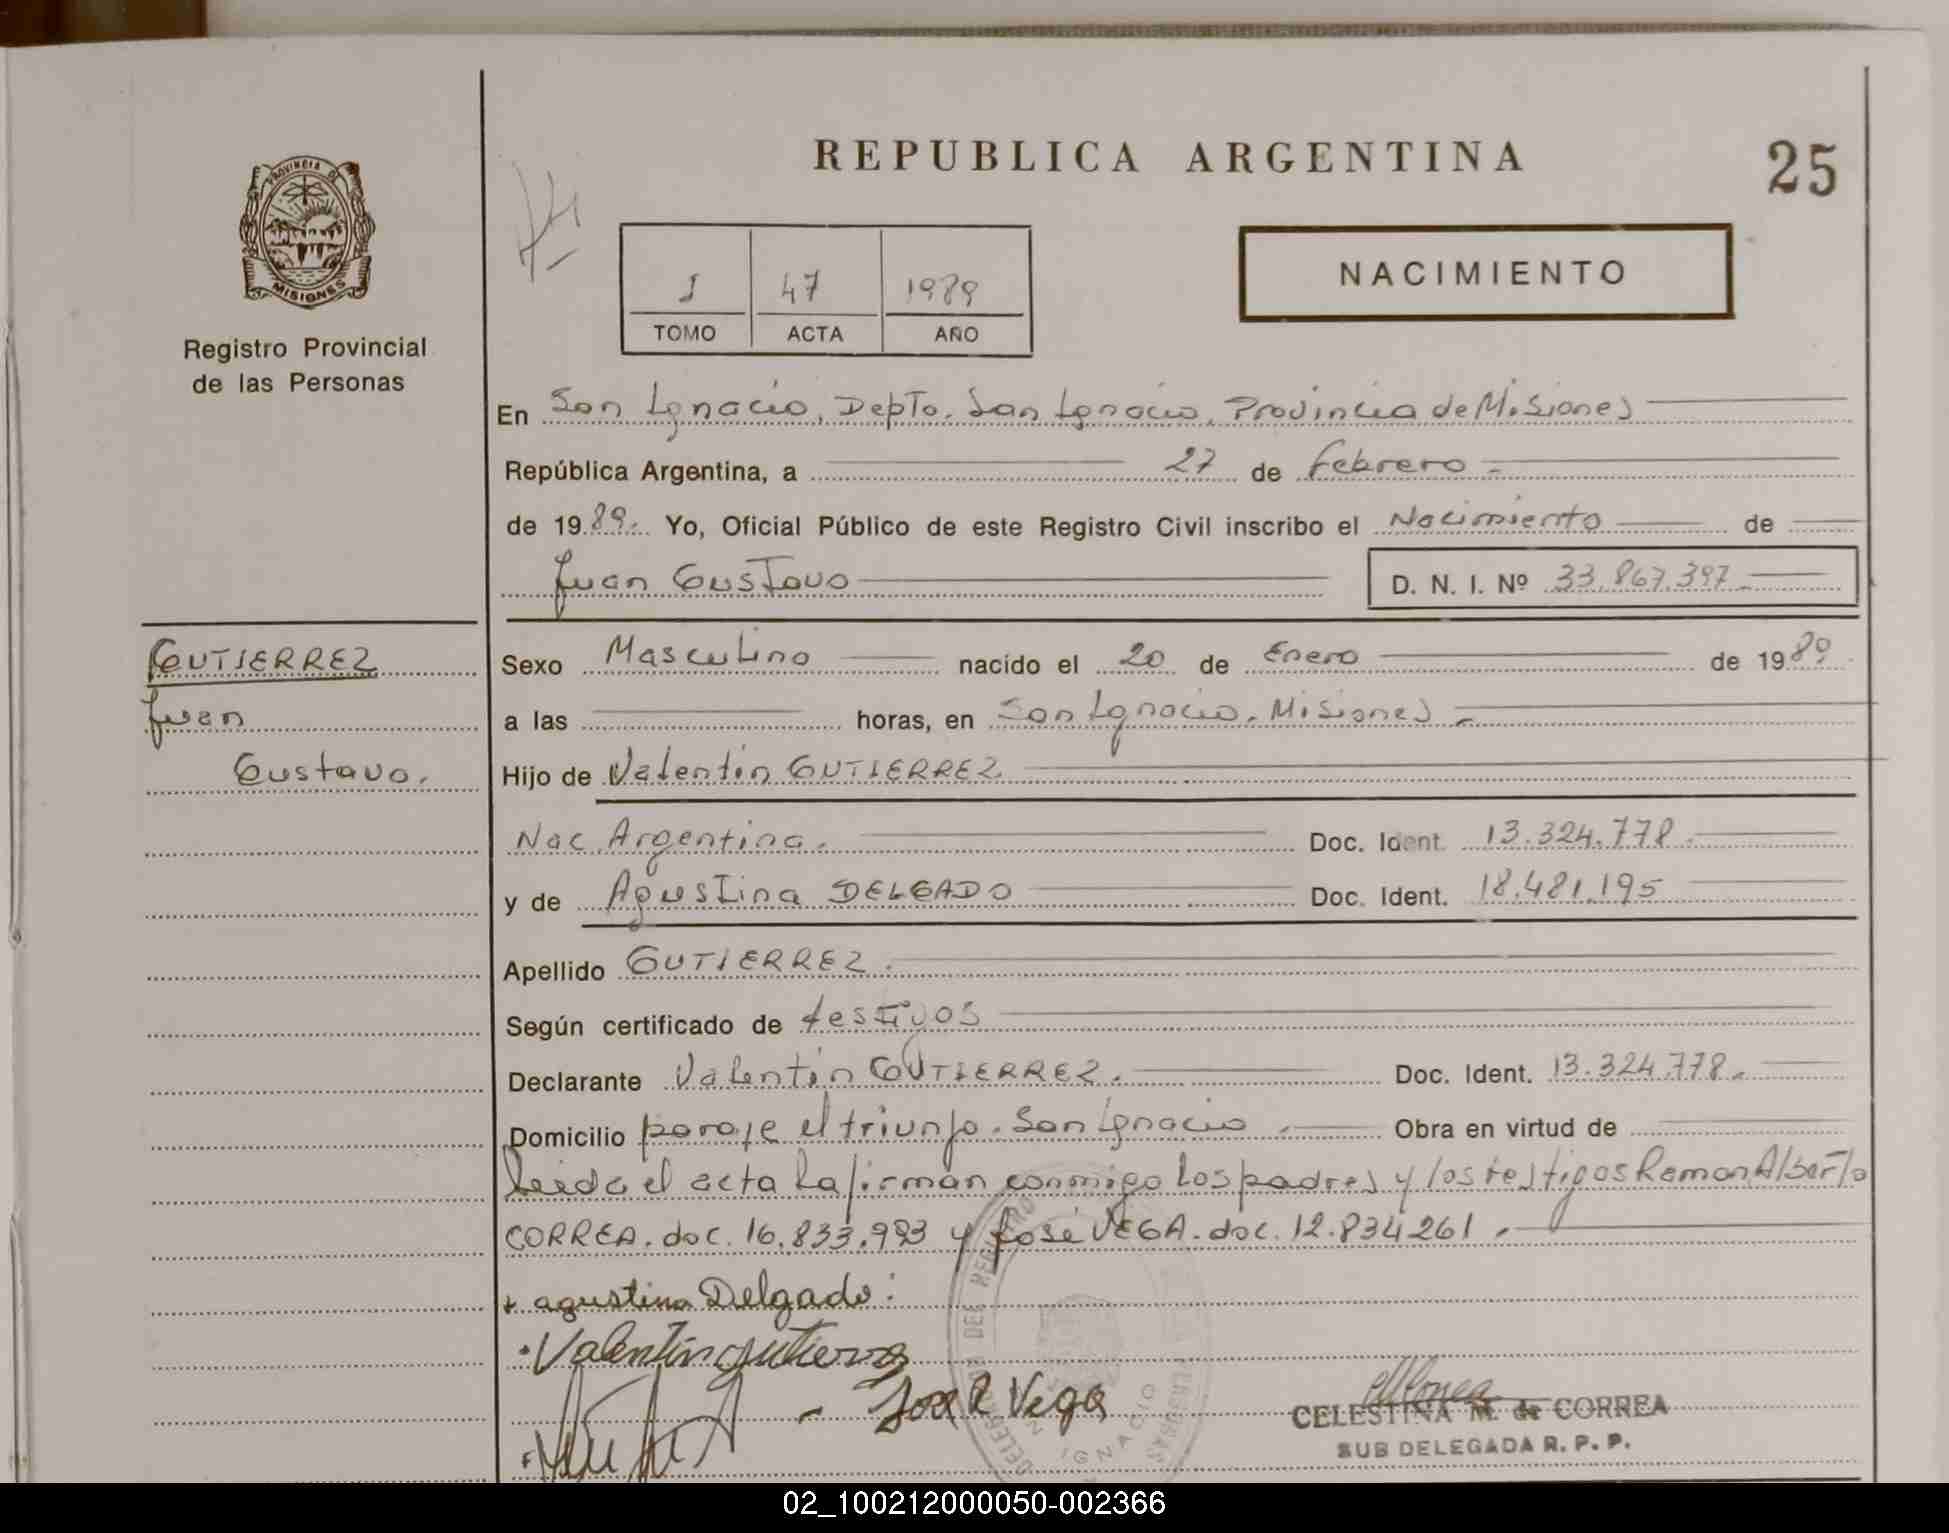 REPUBLICA ARGENTINA
25
PROVINCIA DE
MISIONES
Registro Provincial
de las Personas
I 47 1989
TOMO ACTA AÑO
NACIMIENTO
En San Ignacio, Depto. San Ignacio, Provincia de Misiones
República Argentina, a 27 de Febrero
de 1989. Yo, Oficial Público de este Registro Civil inscribo el Nacimiento de
Juan Gustavo D. N. I. Nº 33.867.397
GUTIERREZ
Juan
Gustavo.
Sexo Masculino nacido el 20 de Enero de 1989
a las horas, en San Ignacio. Misiones
Hijo de Valentín GUTIERREZ
Nac. Argentina. Doc. Ident. 13.324.778.
y de Agustina DELGADO Doc. Ident. 18.481.195
Apellido GUTIERREZ.
Según certificado de testigos
Declarante Valentín GUTIERREZ. Doc. Ident. 13.324.778.
Domicilio paraje el triunfo. San Ignacio. Obra en virtud de
Leida el acta la firman conmigo los padres y los testigos Ramon Alberto
CORREA. doc. 16.833.993 y José VEGA. doc. 12.834261.
agustina Delgado
Valentín gutierrez
Vega
CELESTINA M. de CORREA
SUB DELEGADA R. P. P.
02_100212000050-002366